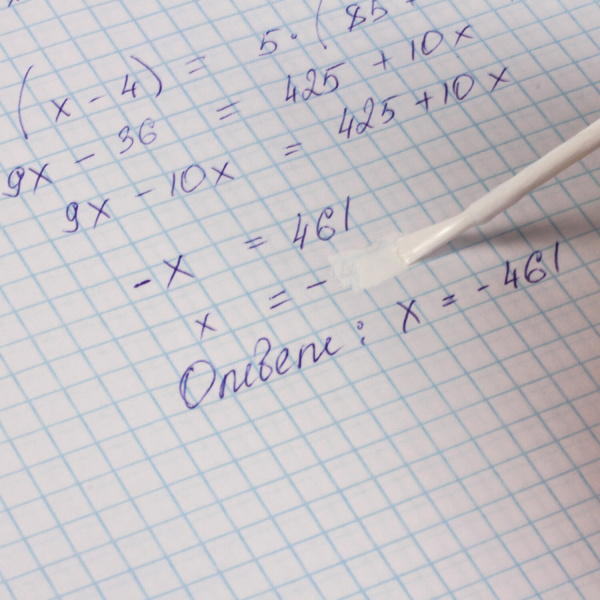 (x - 4) = 5·(85
9x - 36 = 425 + 10x
9x - 10x = 425 + 10x
-x = 461
x = -
Ответ: x = -461